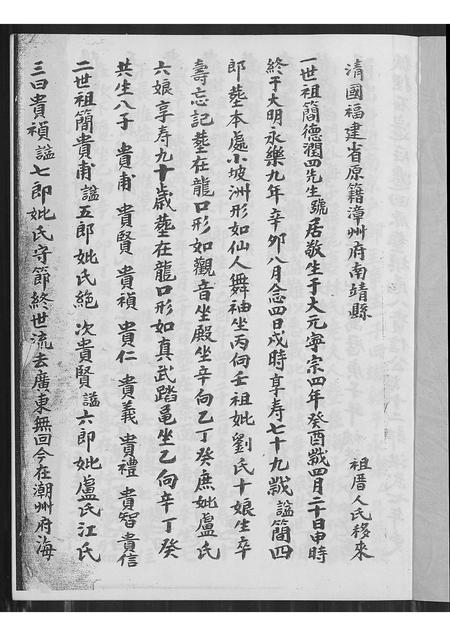 清國福建省原籍漳州府南靖縣 祖厝人氏移來
一世祖簡德潤四先生號居敬生于大元寧宗四年癸酉歲四月二十日申時
終于大明永樂九年辛卯八月念四日戌時享寿七十九歲諡簡四
郎墓本處小坡洲形如仙人舞袖坐丙向壬祖妣劉氏十娘生卒
壽忘記墓在龍口形如觀音坐殿坐辛向乙丁癸庶妣盧氏
六娘享寿九十歲墓在龍口形如真武踏龟坐乙向辛丁癸
共生八子 貴甫 貴賢 貴禎 貴仁 貴義 貴禮 貴智 貴信
二世祖簡貴甫諡五郎妣氏絕 次貴賢諡六郎妣盧氏江氏
三曰貴禎諡七郎妣氏守節終世流去廣東無回今在潮州府海